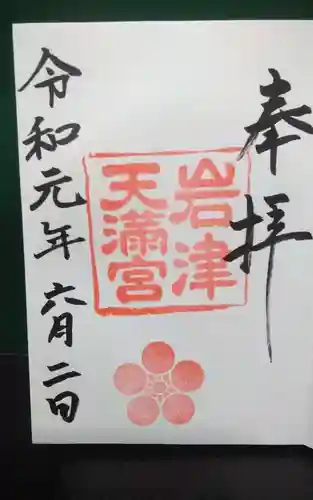 奉拝
岩津
天満宮
令和元年六月二日